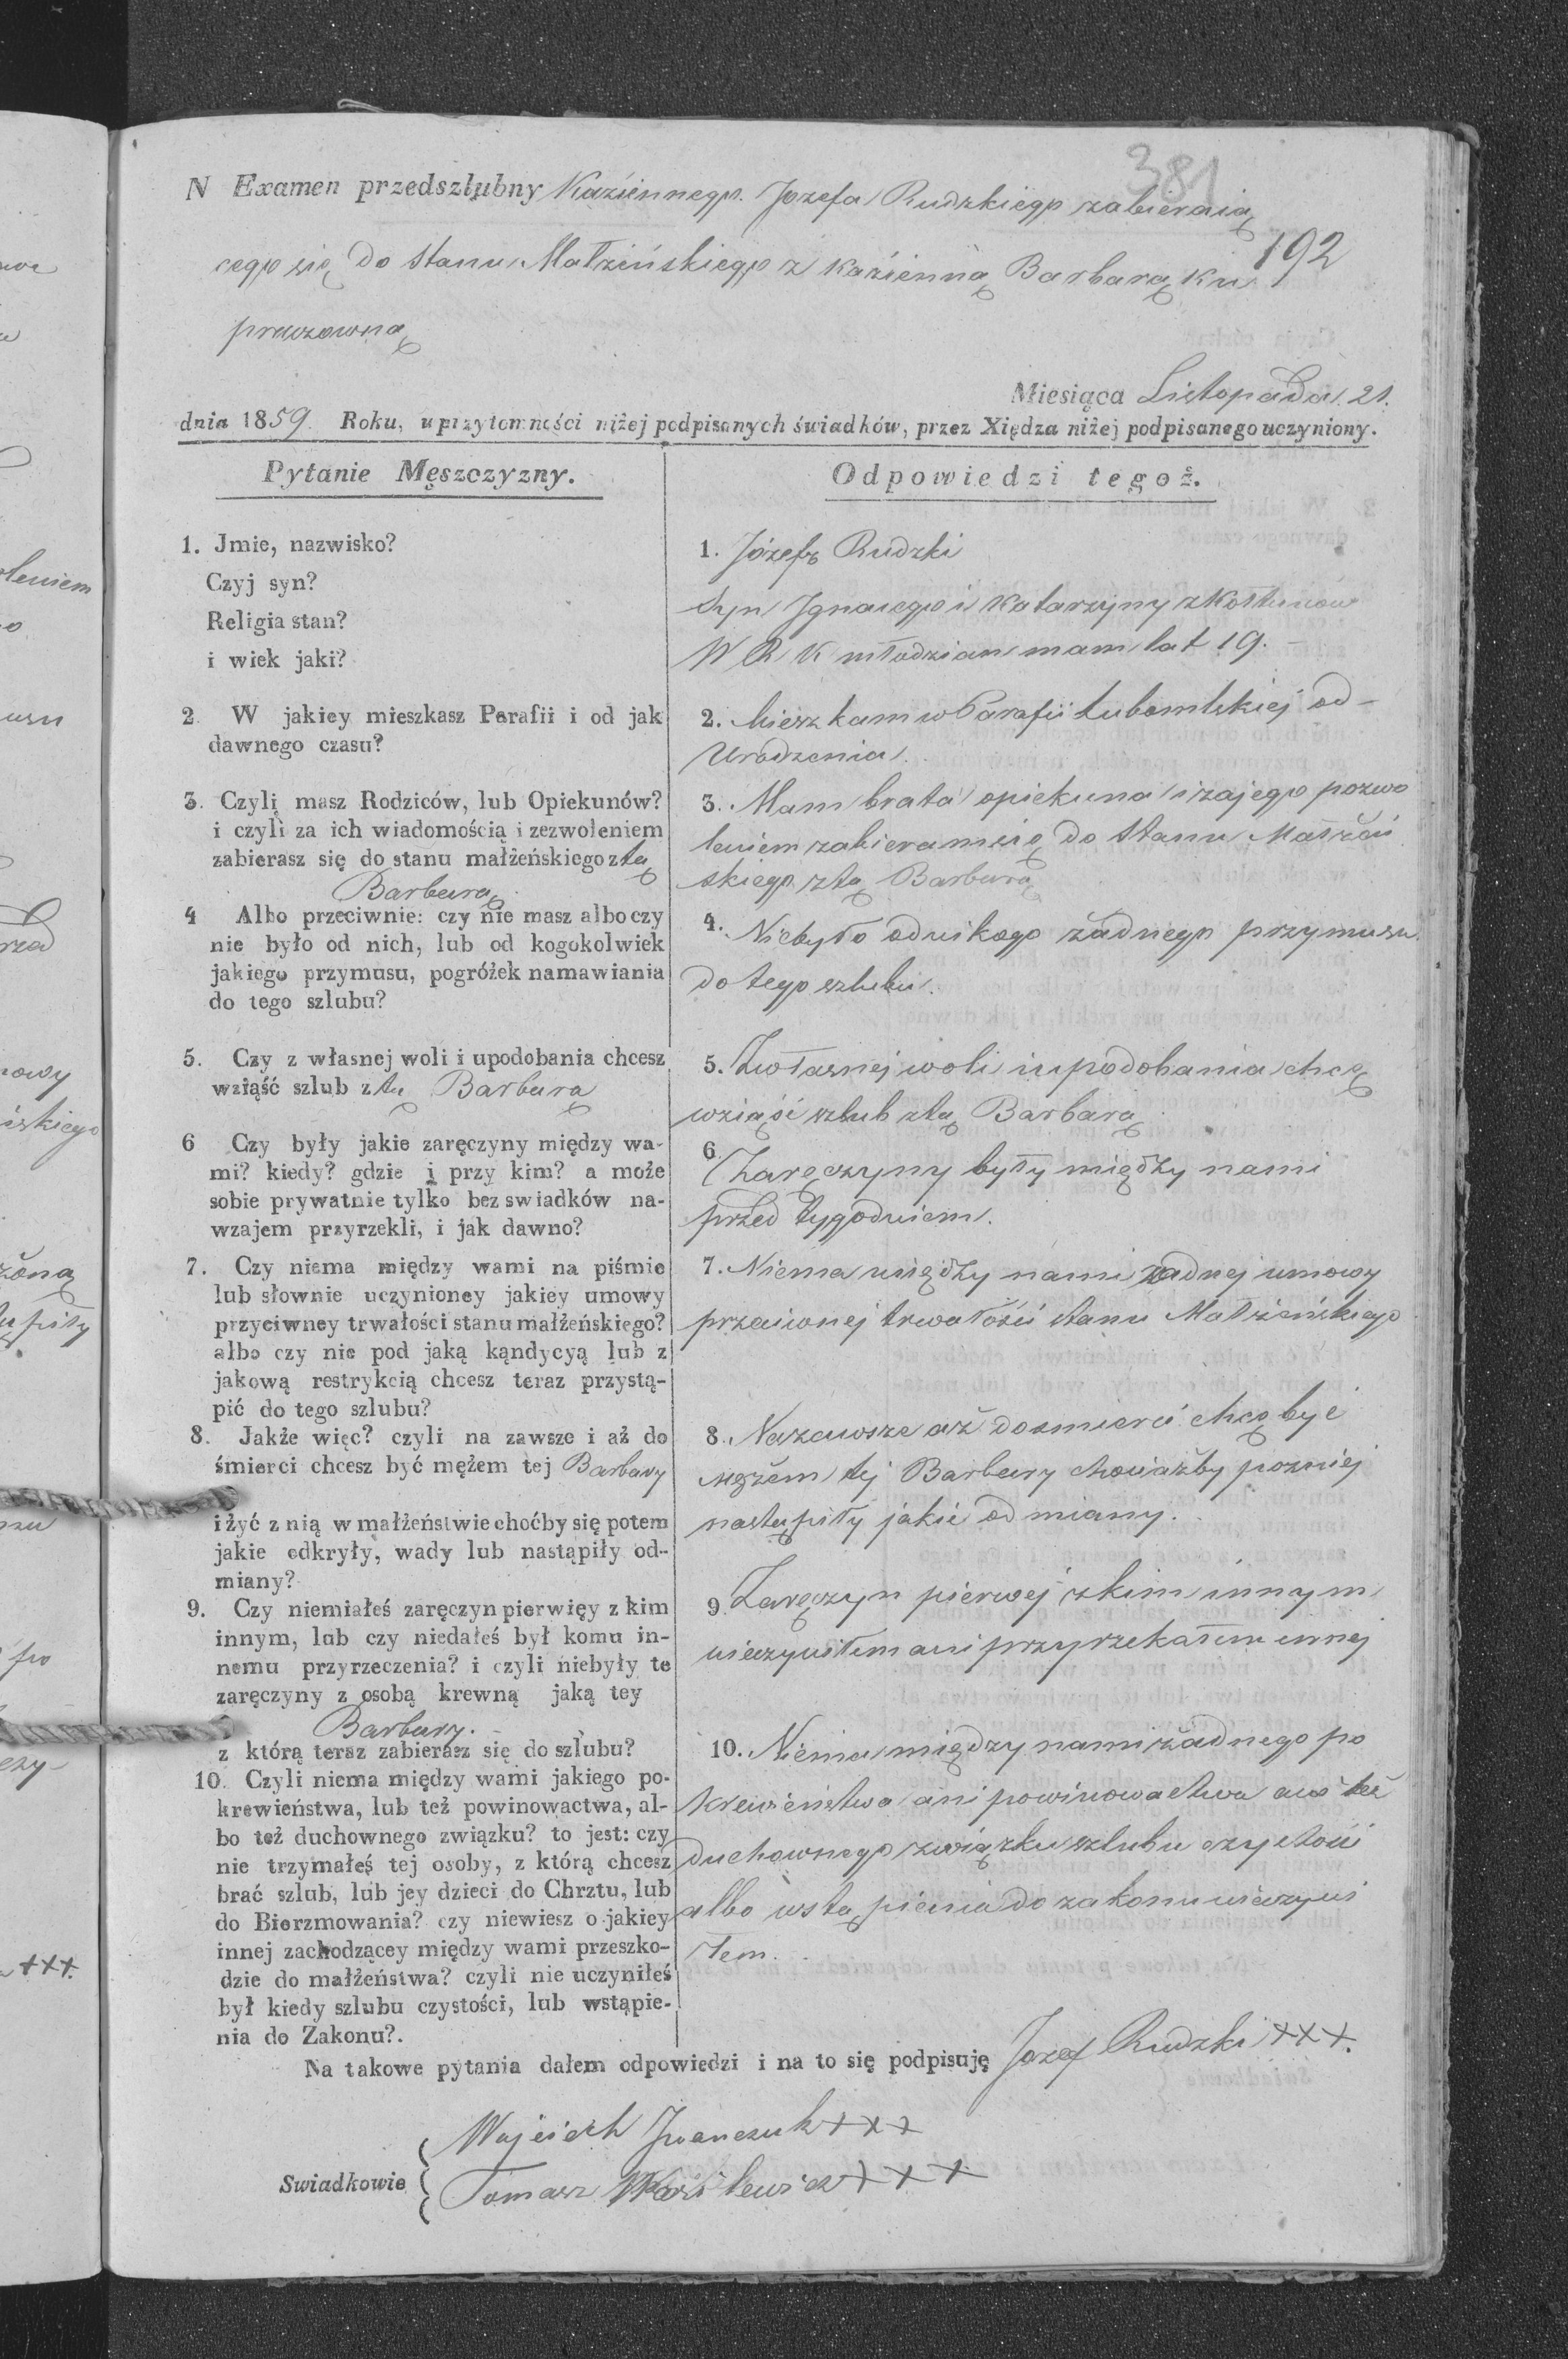 381
N Examen przedszlubny Kaziennego Jozefa Rudzkiego zabieraią
cego się do stanu Małzińskiego z kazienną Barbarą Ku
192
prewzowną
Miesiąca Listopada 21.
dnia 1859. Roku, uprzytomności niżej podpisanych świadków, przez Xiędza niżej podpisanego uczyniony.
Pytanie Męszczyzny.
1. Jmie, nazwisko?
Czyj syn?
Religia stan?
i wiek jaki?
2 W jakiey mieszkasz Parafii i od jak
dawnego czasu?
3. Czyli masz Rodziców, lub Opiekunów?
i czyli za ich wiadomością i zezwoleniem
zabierasz się do stanu małżeńskiego z tą
Barbarą
4 Albo przeciwnie: czy nie masz albo czy
nie było od nich, lub od kogokolwiek
jakiego przymusu, pogróżek namawiania
do tego szlubu?
5. Czy z własnej woli i upodobania chcesz
wziąść szlub z tą Barbarą
6 Czy były jakie zaręczyny między wa-
mi? kiedy? gdzie i przy kim? a może
sobie prywatnie tylko bez swiadków na-
wzajem przyrzekli, i jak dawno?
7. Czy niema między wami na piśmie
lub słownie uczynioney jakiey umowy
przyciwney trwałości stanu małżeńskiego?
albo czy nie pod jaką kąndycyą lub z
jakową restrykcią chcesz teraz przystą-
pić do tego szlubu?
8. Jakże więc? czyli na zawsze i aż do
śmierci chcesz być mężem tej Barbary
i żyć z nią w małżeństwie choćby się potem
jakie odkryły, wady lub nastąpiły od-
miany?
9. Czy niemiałeś zaręczyn pierwięy z kim
innym, lub czy niedałeś był komu in-
nemu przyrzeczenia? i czyli niebyły te
zaręczyny z osobą krewną jaką tey
Barbary.
z którą teraz zabierasz się do szlubu?
10. Czyli niema między wami jakiego po-
krewieństwa, lub też powinowactwa, al-
bo też duchownego związku? to jest: czy
nie trzymałeś tej osoby, z którą chcesz
brać szlub, lub jey dzieci do Chrztu, lub
do Bierzmowania? czy niewiesz o jakiey
innej zachodzącey między wami przeszko-
dzie do małżeństwa? czyli nie uczyniłeś
był kiedy szlubu czystości, lub wstąpie-
nia do Zakonu?.
Odpowiedzi tegoż.
1. Józef Rudzki
Syn Jgnacego i Katarzyny z Kołtunów
W R K młodzian mam lat 19.
2. Mieszkam w Parafii Lubomlskiej od-
Urodzenia.
3. Mam brata opiekuna i zajego pozwo
leniem zabieramsię do stanu Małżeń
skiego ztą Barbarą
4. Niebyło odnikogo żadnego przymusu
do tego szlubu.
5. Zwłasnej woli iupodobania chcę
wziąść szlub ztą Barbarą
6. Zaręczyny były między nami
przed tygodniem.
7. Niema między nami żadnej umowy
przeciwnej trwałości stanu Małżenskiego
8. Nazawsze aż dosmierci chcę być
mężem tej Barbary chociażby pozniej
nastąpiły jakie odmiany.
9. Zaręczyn pierwej zkim innym
nieczyniłem ani przyrzekałem innej
10. Niema między nami żadnego po
krewieństwa ani powinowactwa ani też
duchownego związku szlubu czystości
albo wstąpienia do zakonu nieczyni
łem.
Na takowe pytania dałem odpowiedzi i na to się podpisuję Jozef Rudzki +++.
Swiadkowie
Wojciech Jwanczuk +++
Tomasz Wasilewicz +++